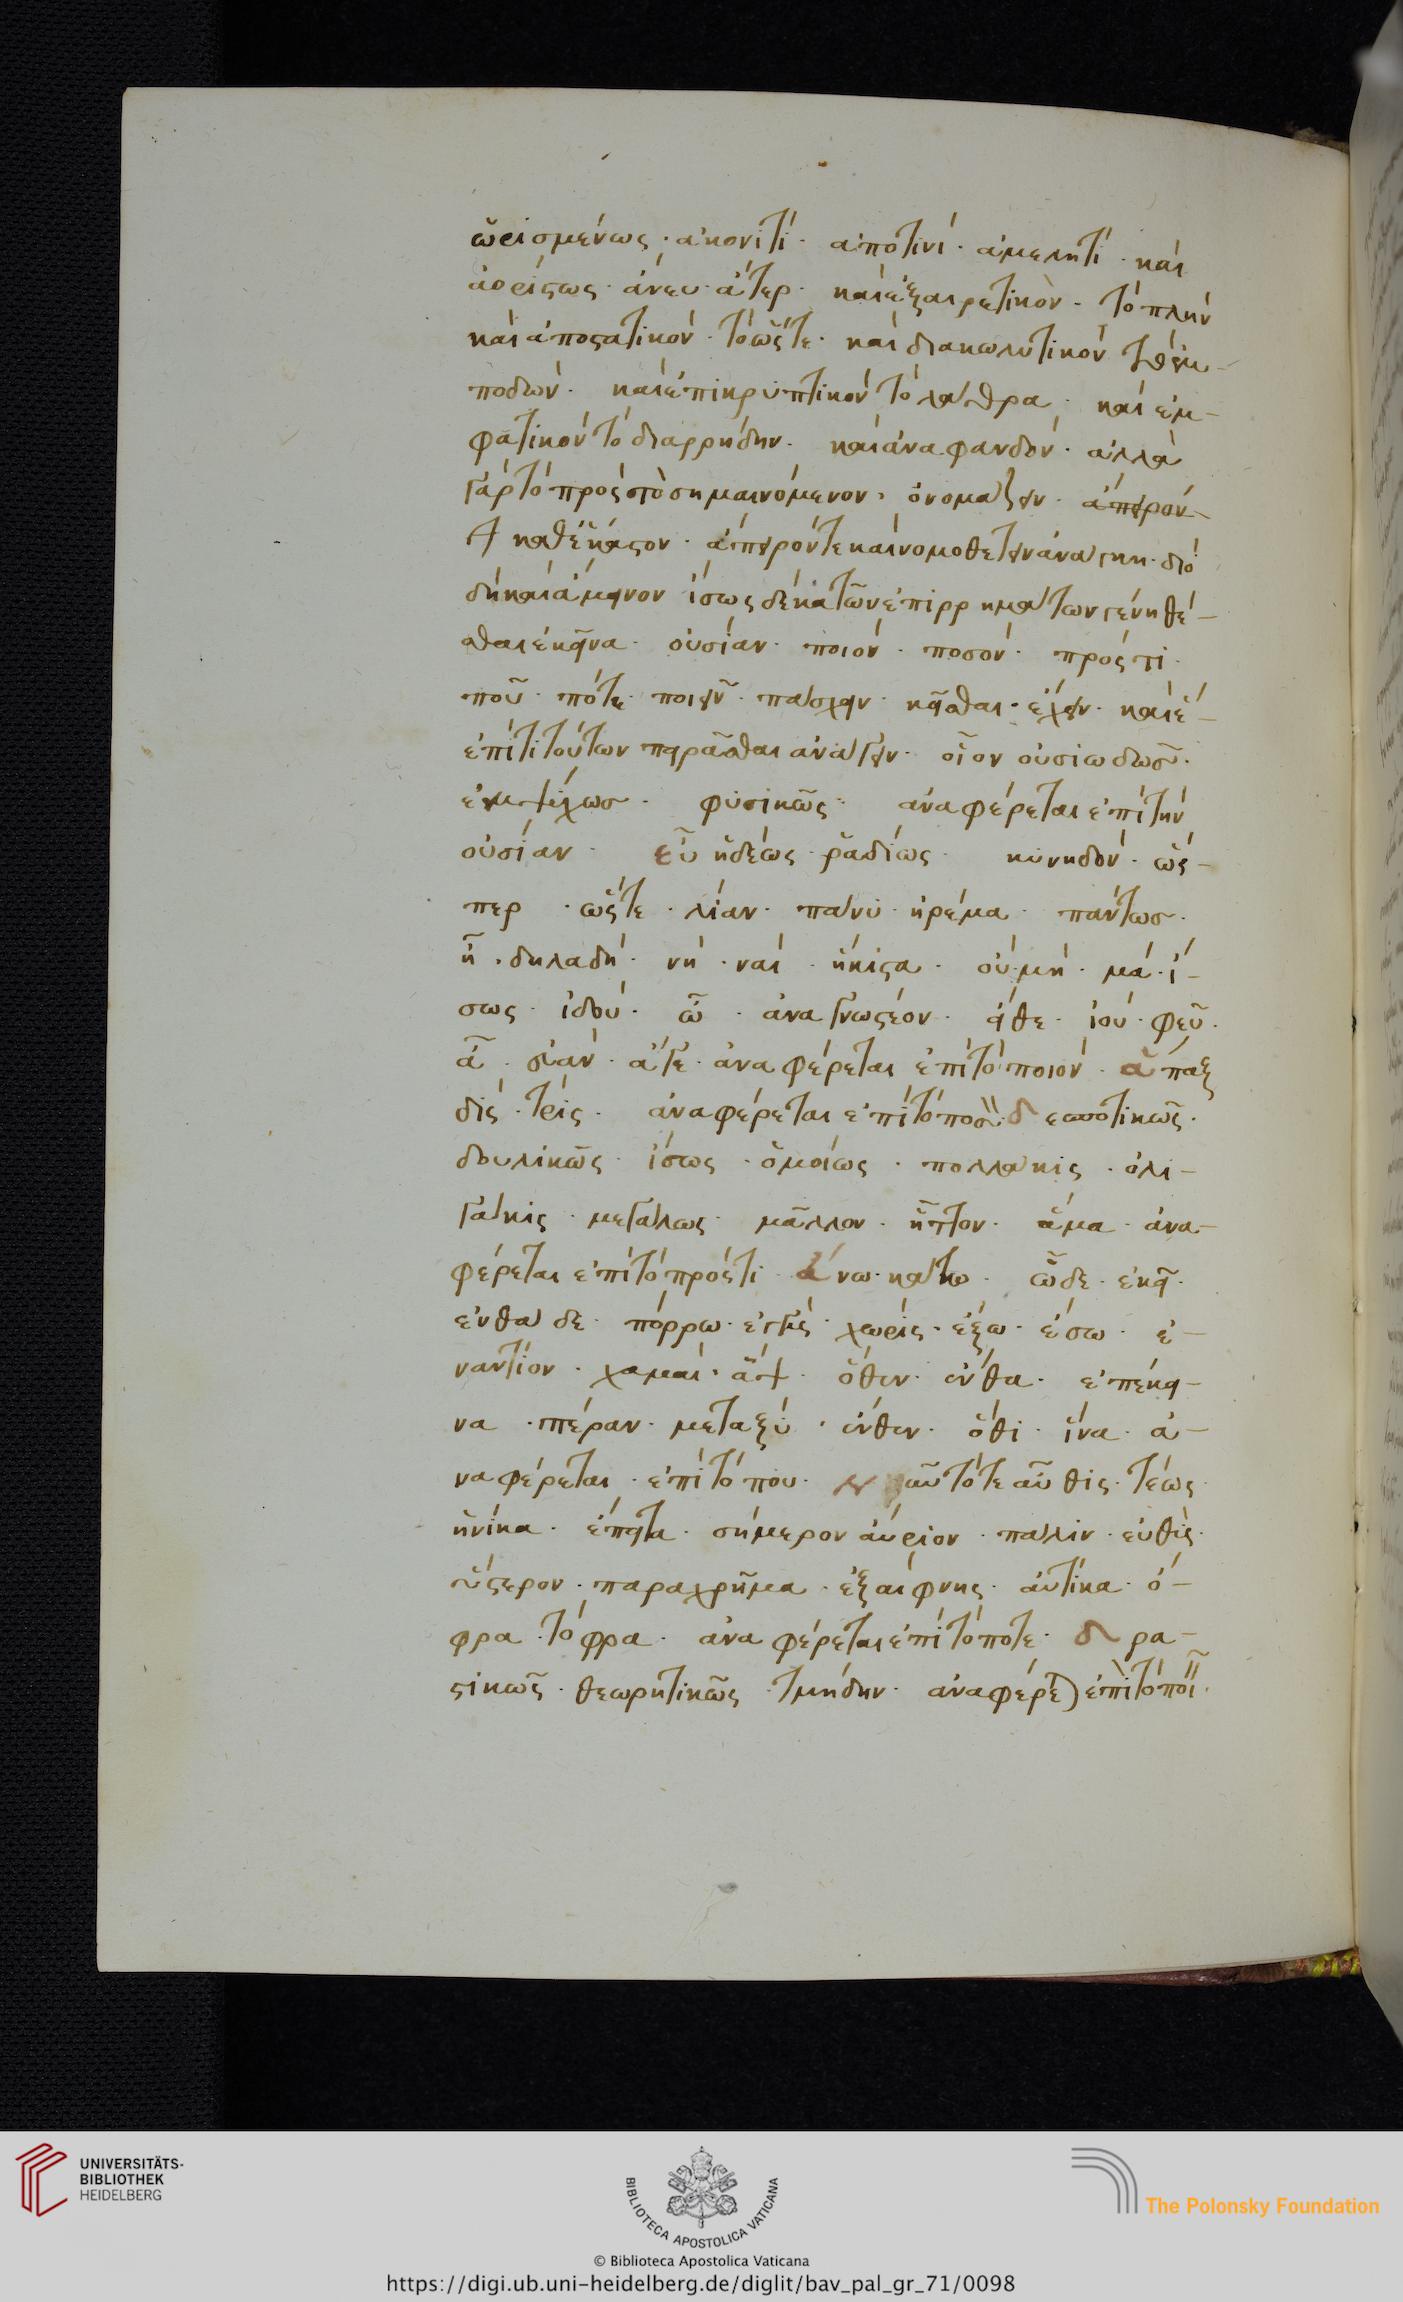 ὡρισμένως · ἀκονιτί · ἀποτινί · ἀμελητί · καὶ
ἀορίστως · ἄνευ · ἄτερ · καὶ ἐξαιρετικὸν · τὸ πλὴν
καὶ ἀποστατικὸν · τὸ ὥστε · καὶ διακωλυτικὸν τὸ ἐκ-
ποδών · καὶ ἐπικρυπτικὸν τὸ λάθρα · καὶ ἐμ-
φατικὸν τὸ διαρρήδην · καὶ ἀναφανδόν · ἀλλὰ
γὰρ τὸ πρὸς τὸ σημαινόμενον · ὀνομάζειν · ἄπειρον
καθέκαστον · ἄπειρόν τε καὶ νομοθετεῖν ἀνάγκη · διὸ
δὴ καὶ ἄμεινον ἴσως δέκα τῶν ἐπιρρημάτων γένη θέ-
σθαι ἐκεῖνα · οὐσίαν · ποιόν · ποσόν · πρός τι ·
ποῦ · πότε · ποιεῖν · πάσχειν · κεῖσθαι · ἔχειν · καὶ ἐ-
ἐπί τι τούτων πειρᾶσθαι ἀνάγειν · οἷον οὐσιωδῶς ·
φυσικῶς · ἀναφέρεται ἐπὶ τὴν
οὐσίαν · εὖ ἡδέως · ῥαδίως · κυνηδόν · ὥσ-
περ · ὥστε · λίαν · πάνυ · ἠρέμα · πάντως ·
ἦ · δηλαδή · νή · ναί · ἥκιστα · οὐ · μή · μά · ἴ-
σως · ἰδού · ὦ · ἀναγνωστέον · εἴθε · ἰού · φεῦ ·
ἆ · ἄγε · ἀναφέρεται ἐπὶ τὸ ποιόν · ἅπαξ
δίς · τρίς · ἀναφέρεται ἐπὶ τὸ ποσόν · δεσποτικῶς ·
δουλικῶς · ἴσως · ὁμοίως · πολλάκις · ὀλι-
γάκις · μεγάλως · μᾶλλον · ἧττον · ἅμα · ἀνα-
φέρεται ἐπὶ τὸ πρός τι · ἄνω · κάτω · ὧδε · ἐκεῖ ·
ἐνθάδε · πόρρω · ἐγγύς · χωρίς · ἔξω · ἔσω · ἐ-
ναντίον · χαμαί · ὅθεν · ἔνθα · ἐπέκει-
να · πέραν · μεταξύ · ἔνθεν · ὅθι · ἵνα · ἀ-
ναφέρεται · ἐπὶ τὸ που · νῦν τότε αὖθις · τέως
ἡνίκα · ἔπειτα · σήμερον αὔριον · πάλιν · εὐθὺς ·
ὕστερον · παραχρῆμα · ἐξαίφνης · αὐτίκα · ὄ-
φρα · τόφρα · ἀναφέρεται ἐπὶ τὸ ποτε · δρα-
στικῶς · θεωρητικῶς · τμήδην · ἀναφέρεται ἐπὶ τὸ ποιεῖν ·
UNIVERSITÄTS-
BIBLIOTHEK
HEIDELBERG
BIBLIOTECA APOSTOLICA VATICANA
The Polonsky Foundation
© Biblioteca Apostolica Vaticana
https://digi.ub.uni-heidelberg.de/diglit/bav_pal_gr_71/0098